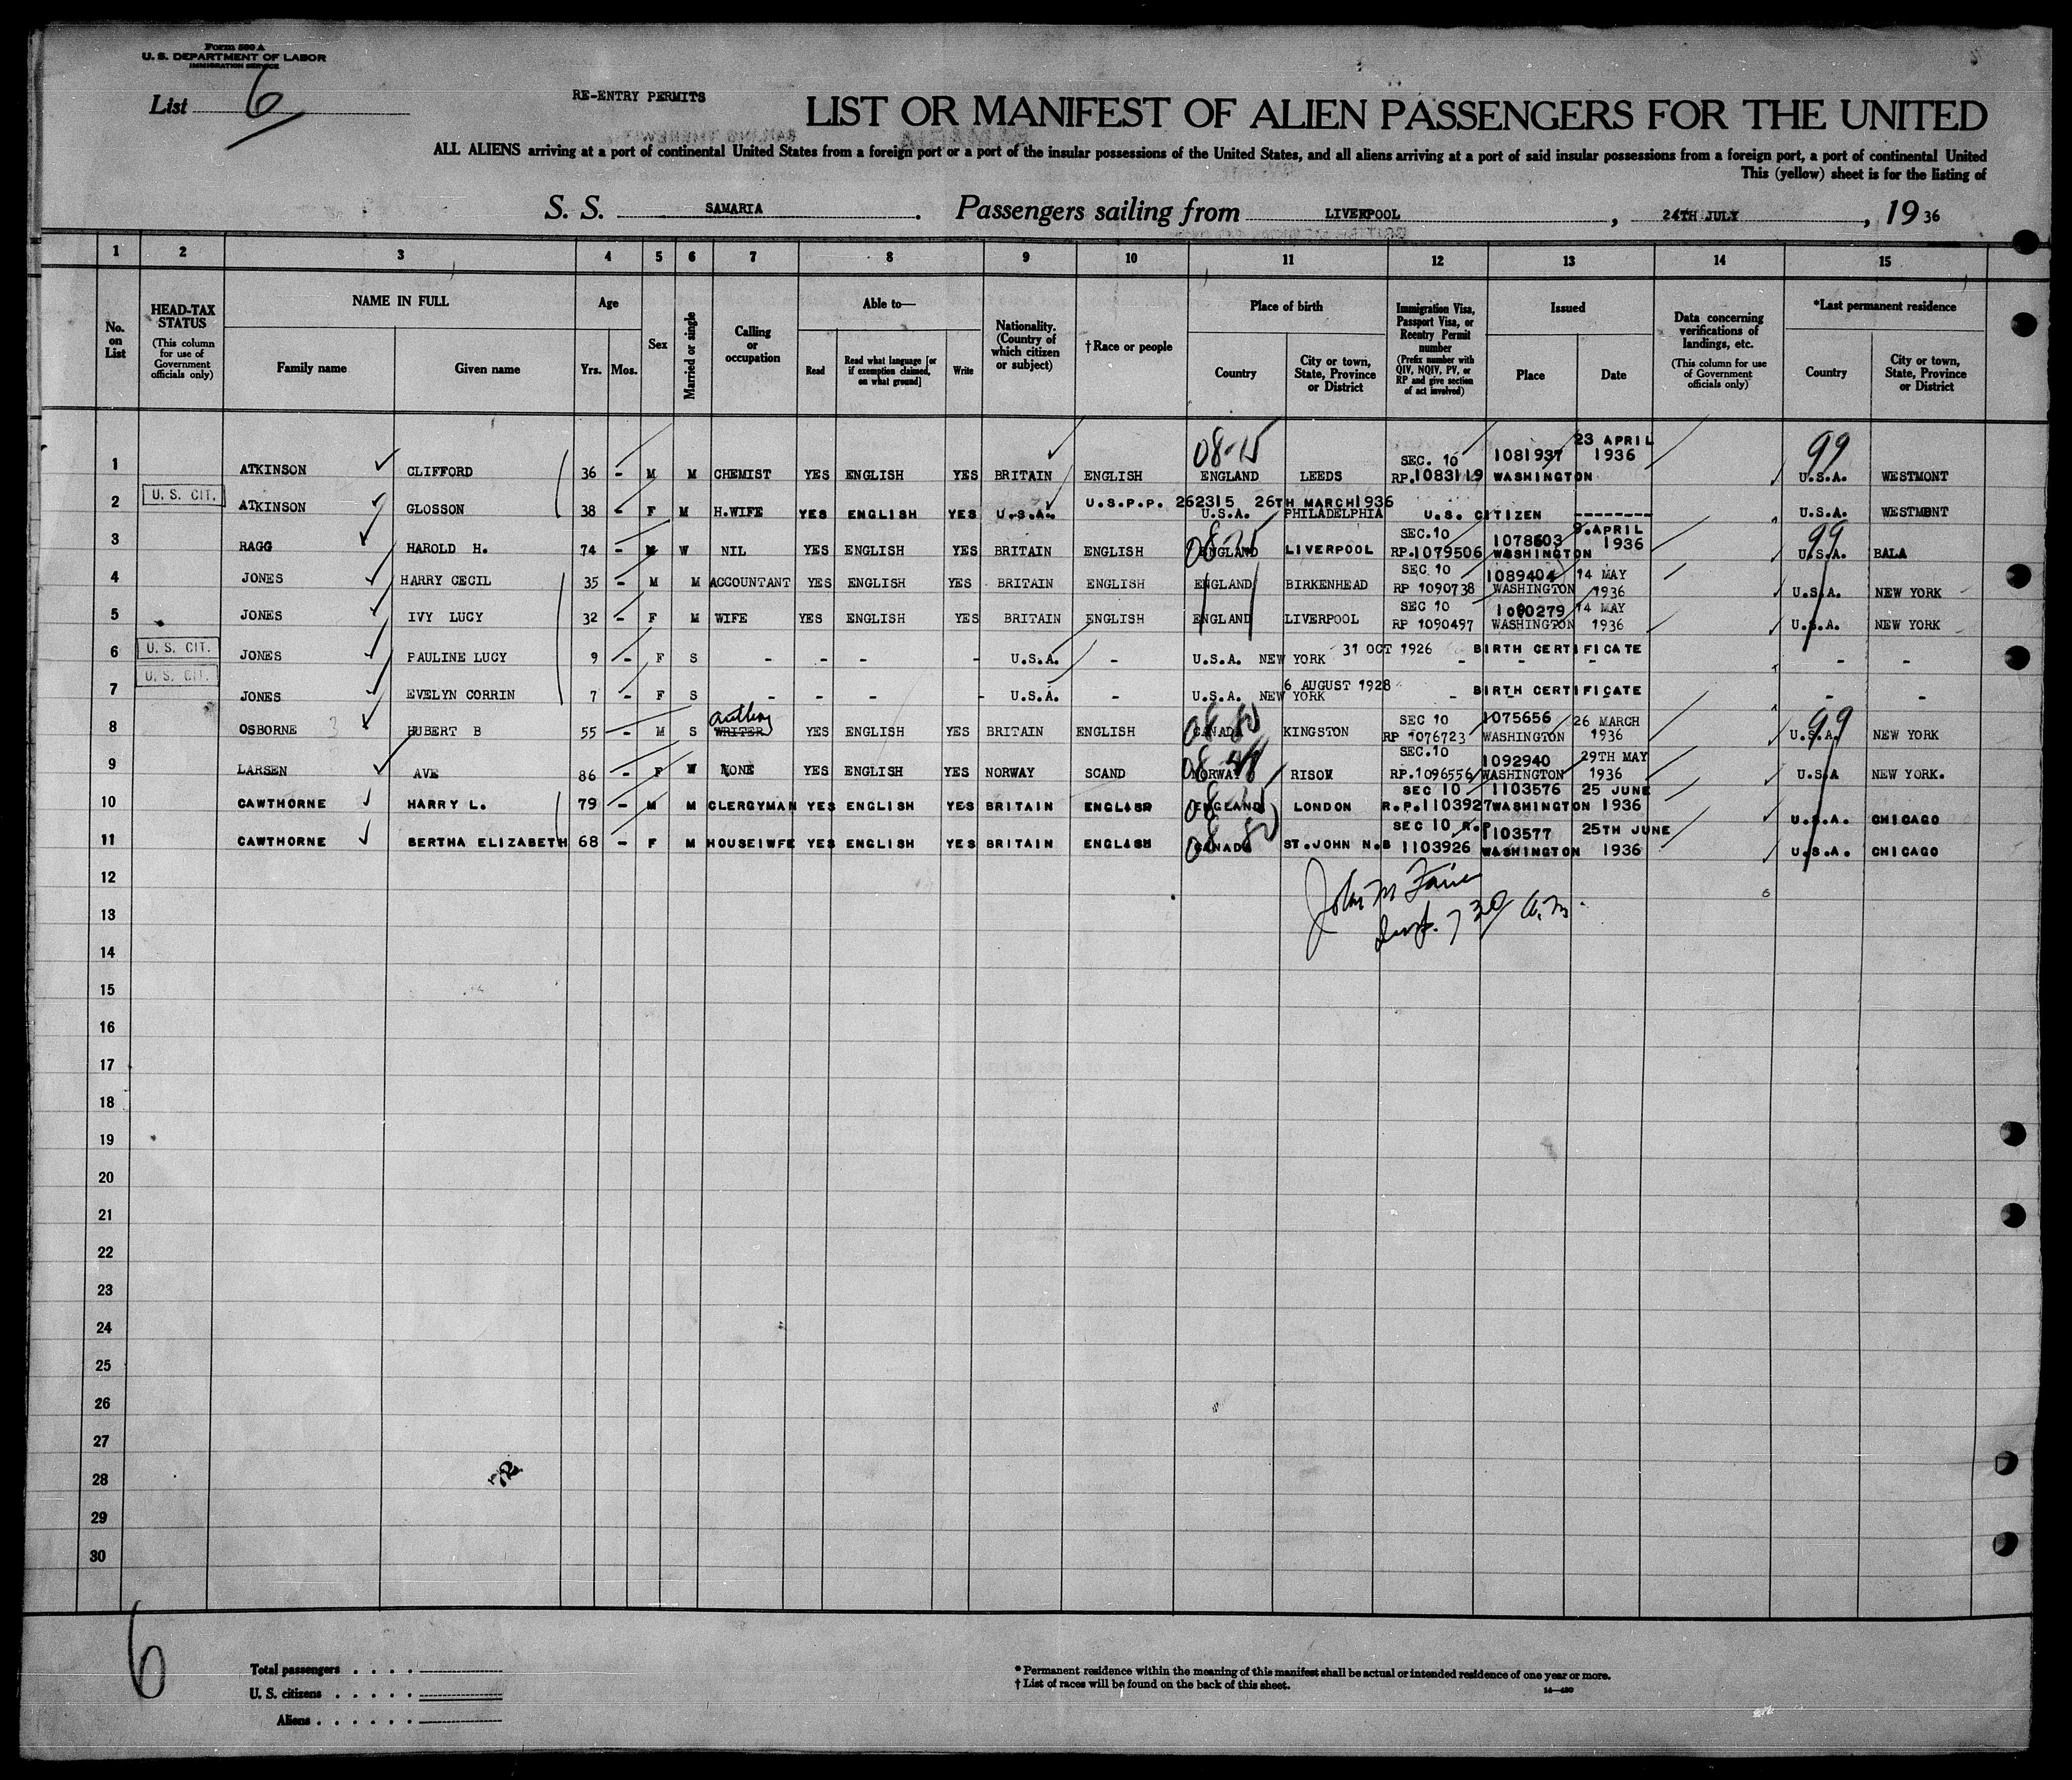 Form 500 A
U. S. DEPARTMENT OF LABOR
IMMIGRATION SERVICE
List 6
RE-ENTRY PERMITS
LIST OR MANIFEST OF ALIEN PASSENGERS FOR THE UNITED
ALL ALIENS arriving at a port of continental United States from a foreign port or a port of the insular possessions of the United States, and all aliens arriving at a port of said insular possessions from a foreign port, a port of continental United
This (yellow) sheet is for the listing of
S. S. SAMARIA. Passengers sailing from LIVERPOOL, 24TH JULY, 1936
1 2 3 4 5 6 7 8 9 10 11 12 13 14 15
No. on List
HEAD-TAX STATUS (This column for use of Government officials only)
NAME IN FULL
Family name Given name
Age
Yrs. Mos.
Sex
Married or single
Calling or occupation
Able to—
Read Read what language [or if exemption claimed, on what ground] Write
Nationality. (Country of which citizen or subject)
†Race or people
Place of birth
Country City or town, State, Province or District
Immigration Visa, Passport Visa, or Reentry Permit number (Prefix number with QIV, NQIV, PV, or RP and give section of act involved)
Issued
Place Date
Data concerning verifications of landings, etc. (This column for use of Government officials only)
*Last permanent residence
Country City or town, State, Province or District
1 ATKINSON CLIFFORD 36 - M M CHEMIST YES ENGLISH YES BRITAIN ENGLISH 08-15 ENGLAND LEEDS SEC. 10 RP.1083119 1081937 WASHINGTON 23 APRIL 1936 99 U.S.A. WESTMONT
2 U. S. CIT. ATKINSON GLOSSON 38 - F M H.WIFE YES ENGLISH YES U.S.A. U.S.P.P. 262315 26TH MARCH1936 U.S.A. PHILADELPHIA U.S. CITIZEN -------- U.S.A. WESTMONT
3 RAGG HAROLD H. 74 - M W NIL YES ENGLISH YES BRITAIN ENGLISH ENGLAND LIVERPOOL SEC.10 RP.1079506 1078603 WASHINGTON 9.APRIL 1936 99 U.S.A. BALA
4 JONES HARRY CECIL 35 - M M ACCOUNTANT YES ENGLISH YES BRITAIN ENGLISH ENGLAND BIRKENHEAD SEC 10 RP 1090738 1089404 WASHINGTON 14 MAY 1936 U.S.A. NEW YORK
5 JONES IVY LUCY 32 - F M WIFE YES ENGLISH YES BRITAIN ENGLISH ENGLAND LIVERPOOL SEC 10 RP 1090497 1090279 WASHINGTON 14 MAY 1936 U.S.A. NEW YORK
6 U. S. CIT. JONES PAULINE LUCY 9 - F S - - - - U.S.A. - U.S.A. NEW YORK 31 OCT 1926 - BIRTH CERTIFICATE - - - -
7 U. S. CIT. JONES EVELYN CORRIN 7 - F S - - - - U.S.A. - U.S.A. NEW YORK 6 AUGUST 1928 - BIRTH CERTIFICATE - - - -
8 OSBORNE HUBERT B 55 - M S WRITER YES ENGLISH YES BRITAIN ENGLISH CANADA KINGSTON SEC 10 RP 1076723 1075656 WASHINGTON 26 MARCH 1936 99 U.S.A. NEW YORK
9 LARSEN AVE 86 - F W NONE YES ENGLISH YES NORWAY SCAND NORWAY RISOM SEC.10 RP.1096556 1092940 WASHINGTON 29TH MAY 1936 U.S.A NEW YORK.
10 CAWTHORNE HARRY L. 79 - M M CLERGYMAN YES ENGLISH YES BRITAIN ENGLISH ENGLAND LONDON SEC 10 R.P.1103927 1103576 WASHINGTON 25 JUNE 1936 U.S.A. CHICAGO
11 CAWTHORNE BERTHA ELIZABETH 68 - F M HOUSEIWFE YES ENGLISH YES BRITAIN ENGLISH CANADA ST.JOHN N.B SEC 10 R.P 1103926 1103577 WASHINGTON 25TH JUNE 1936 U.S.A. CHICAGO
12
13
14
15
16
17
18
19
20
21
22
23
24
25
26
27
28
29
30
6
Total passengers . . . .
U. S. citizens . . . . .
Aliens . . . . . .
* Permanent residence within the meaning of this manifest shall be actual or intended residence of one year or more.
† List of races will be found on the back of this sheet.
14—490